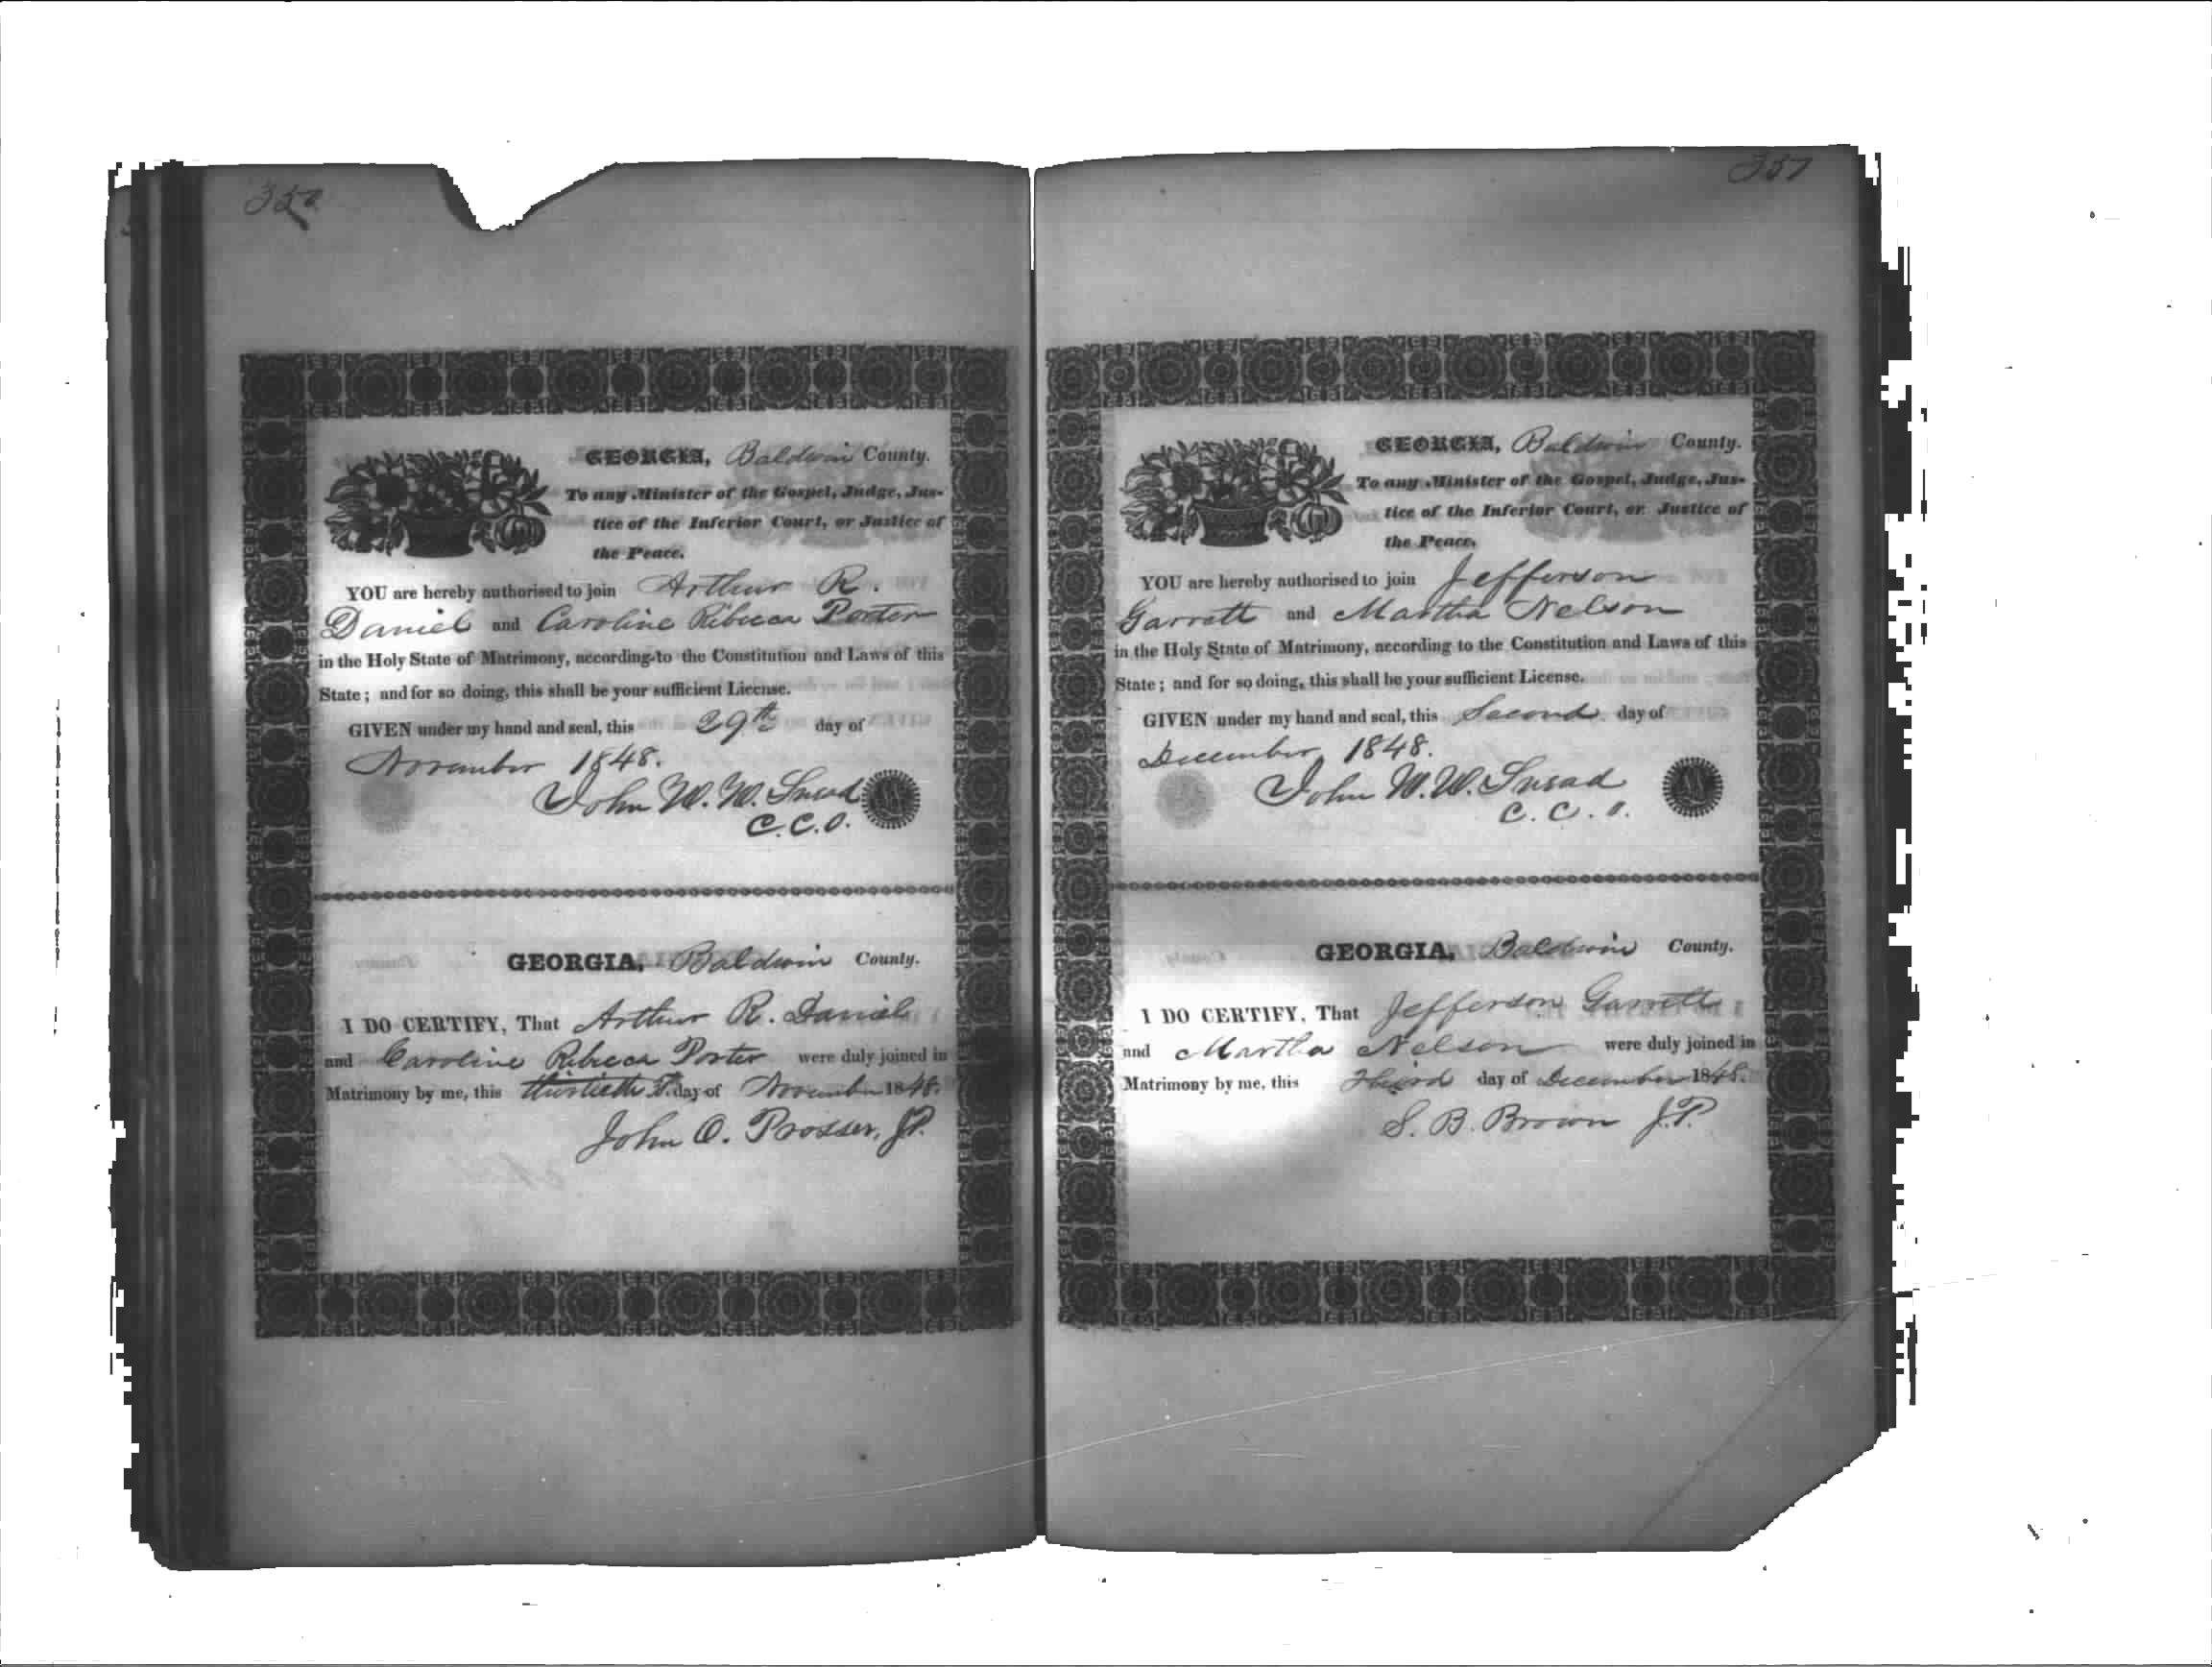 350
GEORGIA, Baldwin County.
To any Minister of the Gospel, Judge, Jus-
tice of the Inferior Court, or Justice of
the Peace.
YOU are hereby authorised to join Arthur R.
Daniel and Caroline Rebecca Porter
in the Holy State of Matrimony, according to the Constitution and Laws of this
State; and for so doing, this shall be your sufficient License.
GIVEN under my hand and seal, this 29th day of
November 1848.
John W. W. Snead
C.C.O.
GEORGIA, Baldwin County.
I DO CERTIFY, That Arthur R. Daniel
and Caroline Rebecca Porter were duly joined in
Matrimony by me, this thirtieth day of November 1848.
John O. Prosser, J.P.
351
GEORGIA, Baldwin County.
To any Minister of the Gospel, Judge, Jus-
tice of the Inferior Court, or Justice of
the Peace.
YOU are hereby authorised to join Jefferson
Garrett and Martha Nelson
in the Holy State of Matrimony, according to the Constitution and Laws of this
State; and for so doing, this shall be your sufficient License.
GIVEN under my hand and seal, this Second day of
December 1848.
John W. W. Snead
C.C.O.
GEORGIA, Baldwin County.
I DO CERTIFY, That Jefferson Garrett
and Martha Nelson were duly joined in
Matrimony by me, this Third day of December 1848.
S. B. Brown J.P.